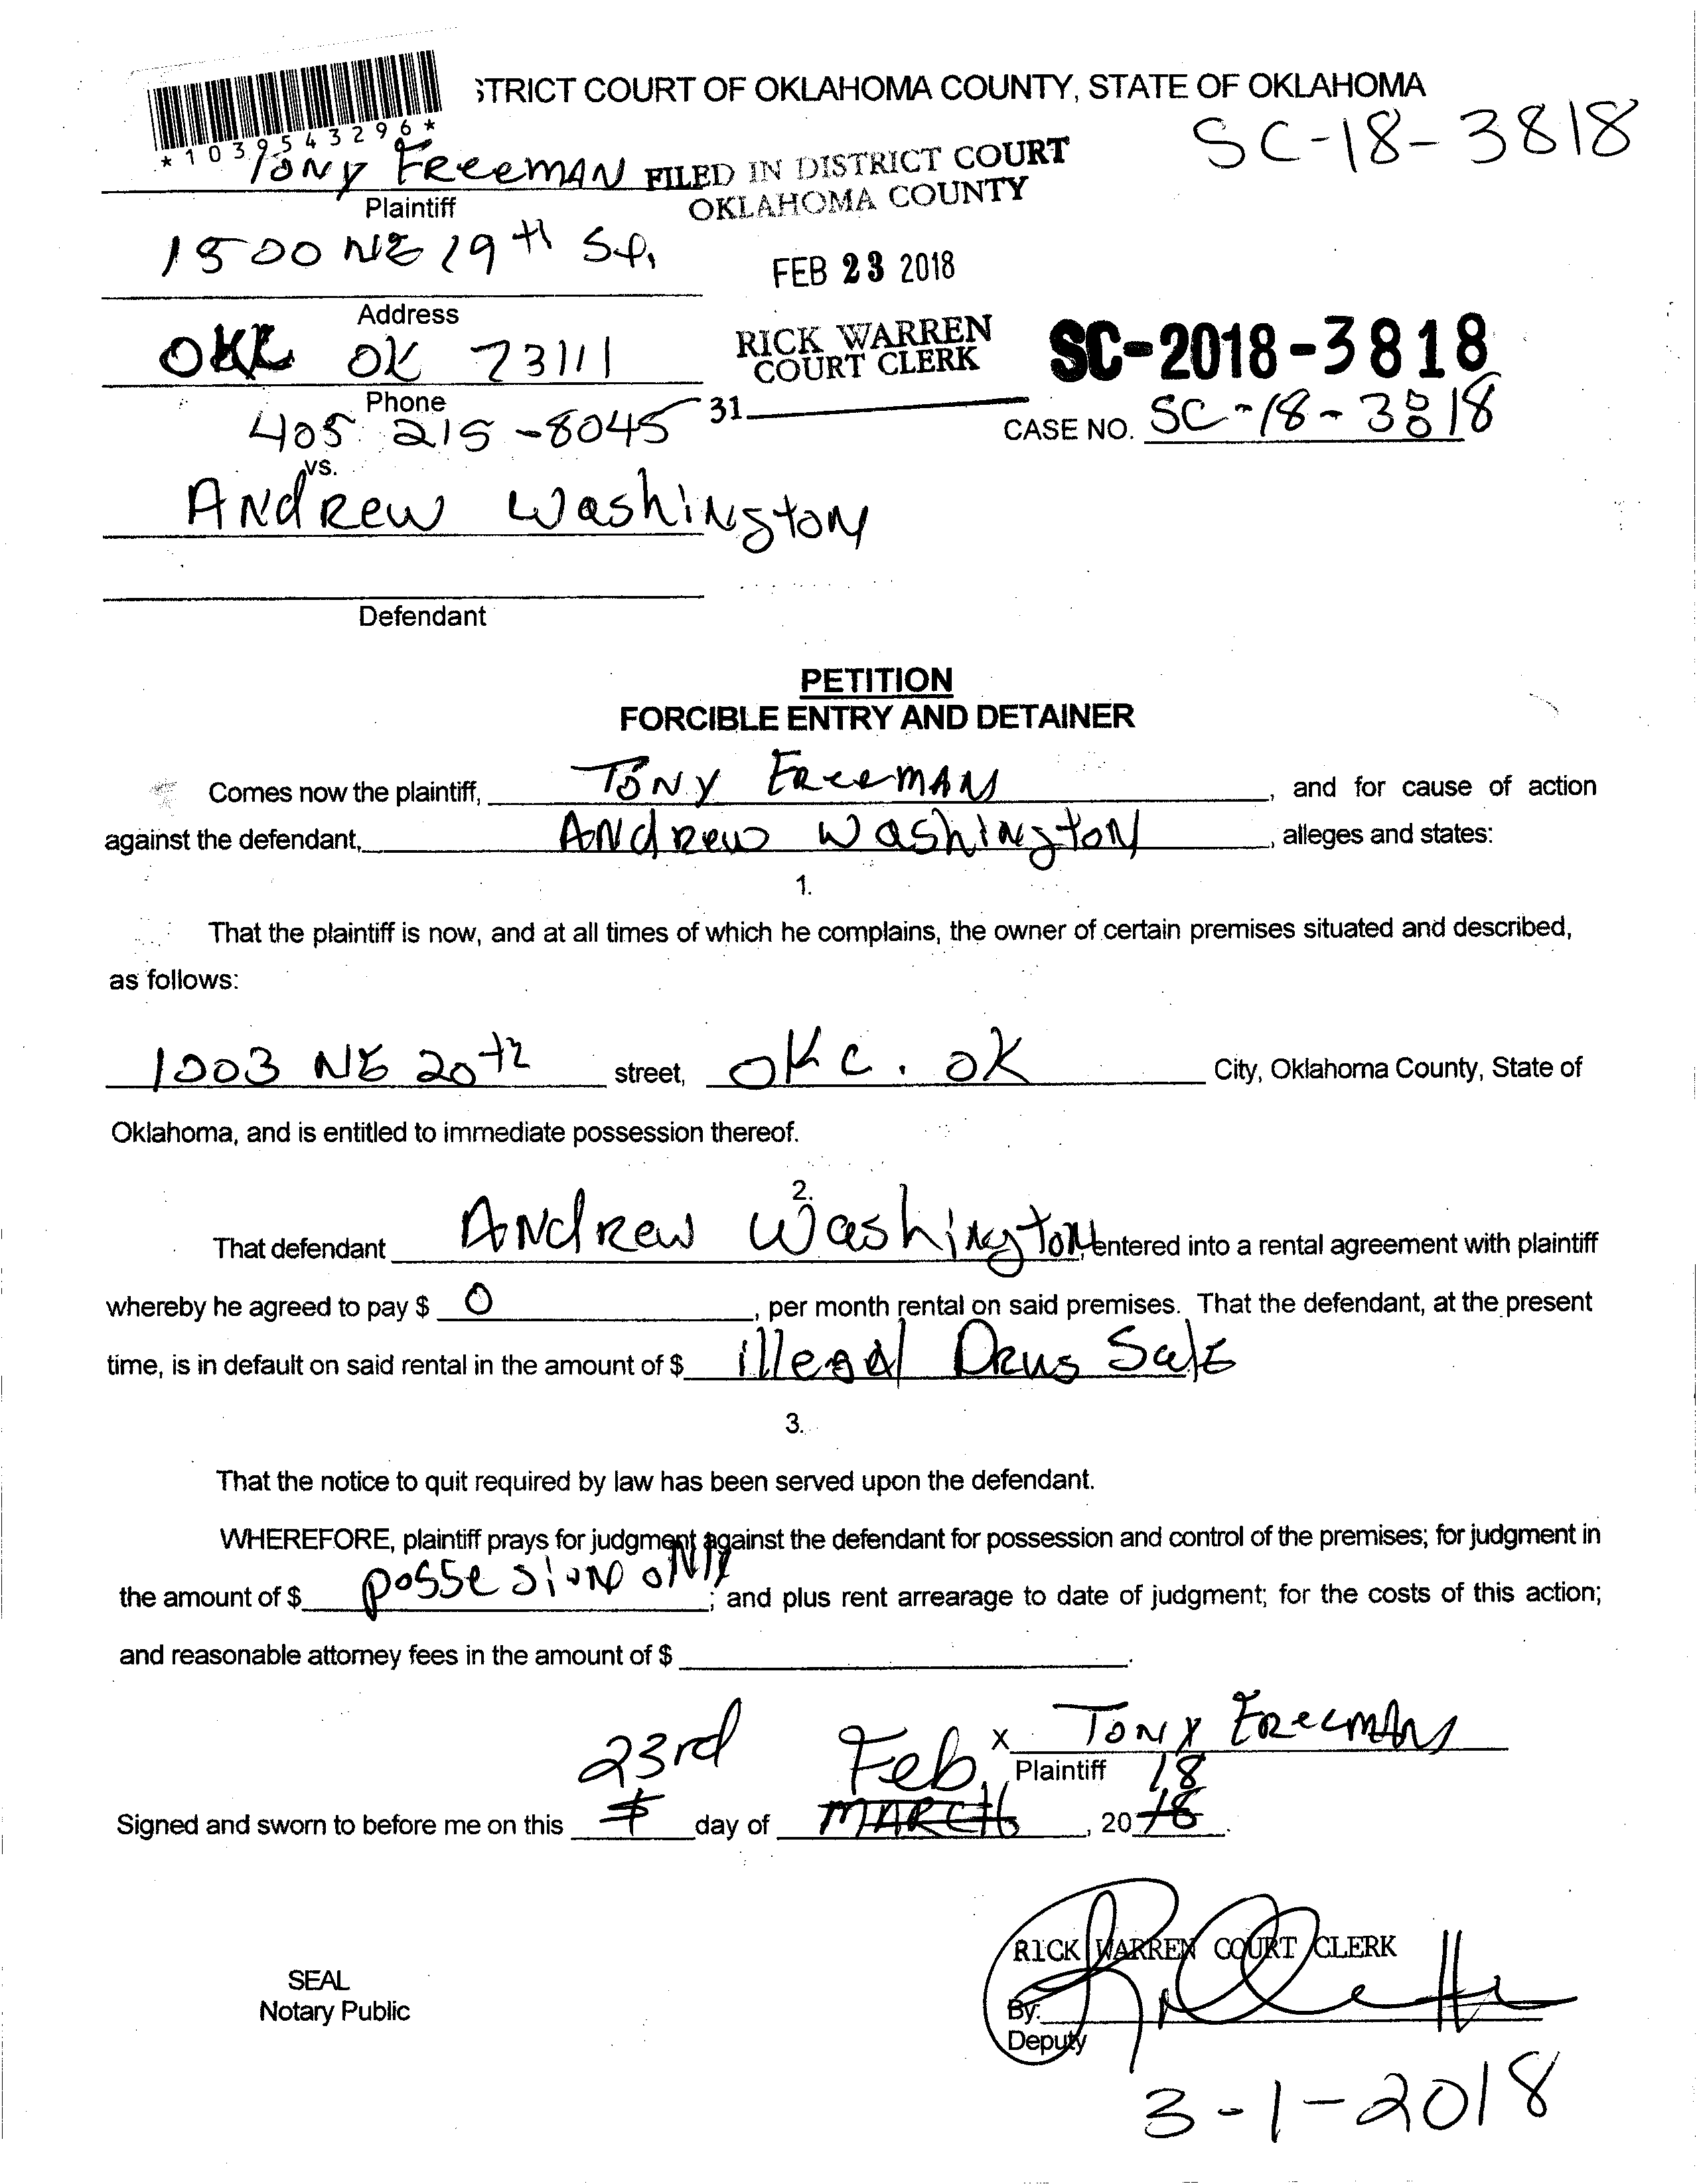 STRICT COURT OF OKLAHOMA COUNTY, STATE OF OKLAHOMA
SC-18-3818
*1039543296*
Tony Freeman
FILED IN DISTRICT COURT
OKLAHOMA COUNTY
Plaintiff
1500 NE 19th St.
FEB 23 2018
Address
OKC OK 73111
RICK WARREN
COURT CLERK
SC-2018-3818
Phone
405 215-8045
31
CASE NO. SC-18-3818
vs.
Andrew Washington
Defendant
PETITION
FORCIBLE ENTRY AND DETAINER
Comes now the plaintiff, Tony Freeman, and for cause of action
against the defendant, Andrew Washington, alleges and states:
1.
That the plaintiff is now, and at all times of which he complains, the owner of certain premises situated and described,
as follows:
1003 NE 20th street, OKC. OK City, Oklahoma County, State of
Oklahoma, and is entitled to immediate possession thereof.
2.
That defendant Andrew Washington, entered into a rental agreement with plaintiff
whereby he agreed to pay $ 0, per month rental on said premises. That the defendant, at the present
time, is in default on said rental in the amount of $ illegal Drug Sale
3.
That the notice to quit required by law has been served upon the defendant.
WHEREFORE, plaintiff prays for judgment against the defendant for possession and control of the premises; for judgment in
the amount of $ possesion only; and plus rent arrearage to date of judgment; for the costs of this action;
and reasonable attorney fees in the amount of $
x Tony Freeman
23rd Feb. Plaintiff 18
Signed and sworn to before me on this day of MARCH, 20 18.
RICK WARREN COURT CLERK
SEAL
Notary Public
By:
Deputy
3-1-2018